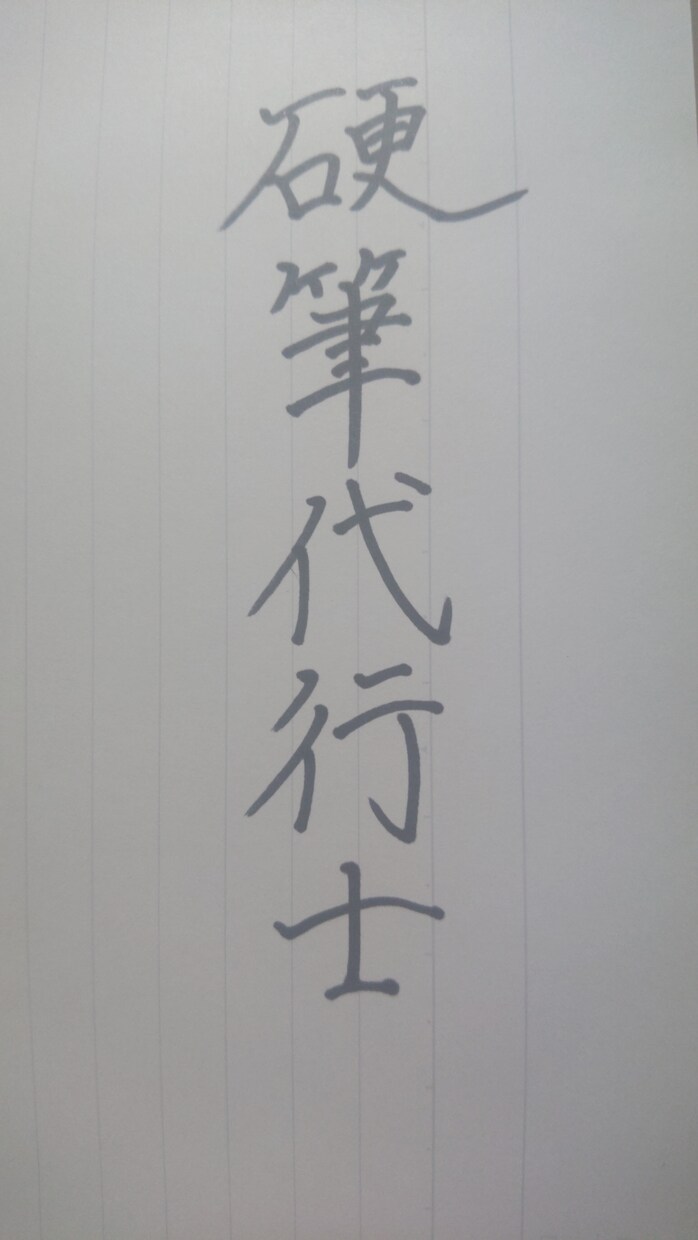 硬筆代行士